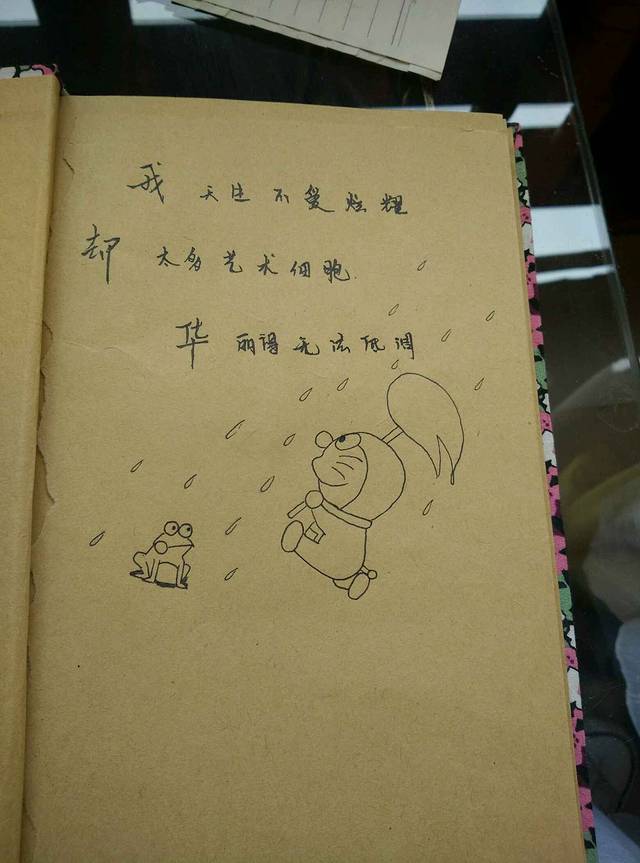 我天生不爱炫耀
却太多艺术细胞
华丽得无法低调